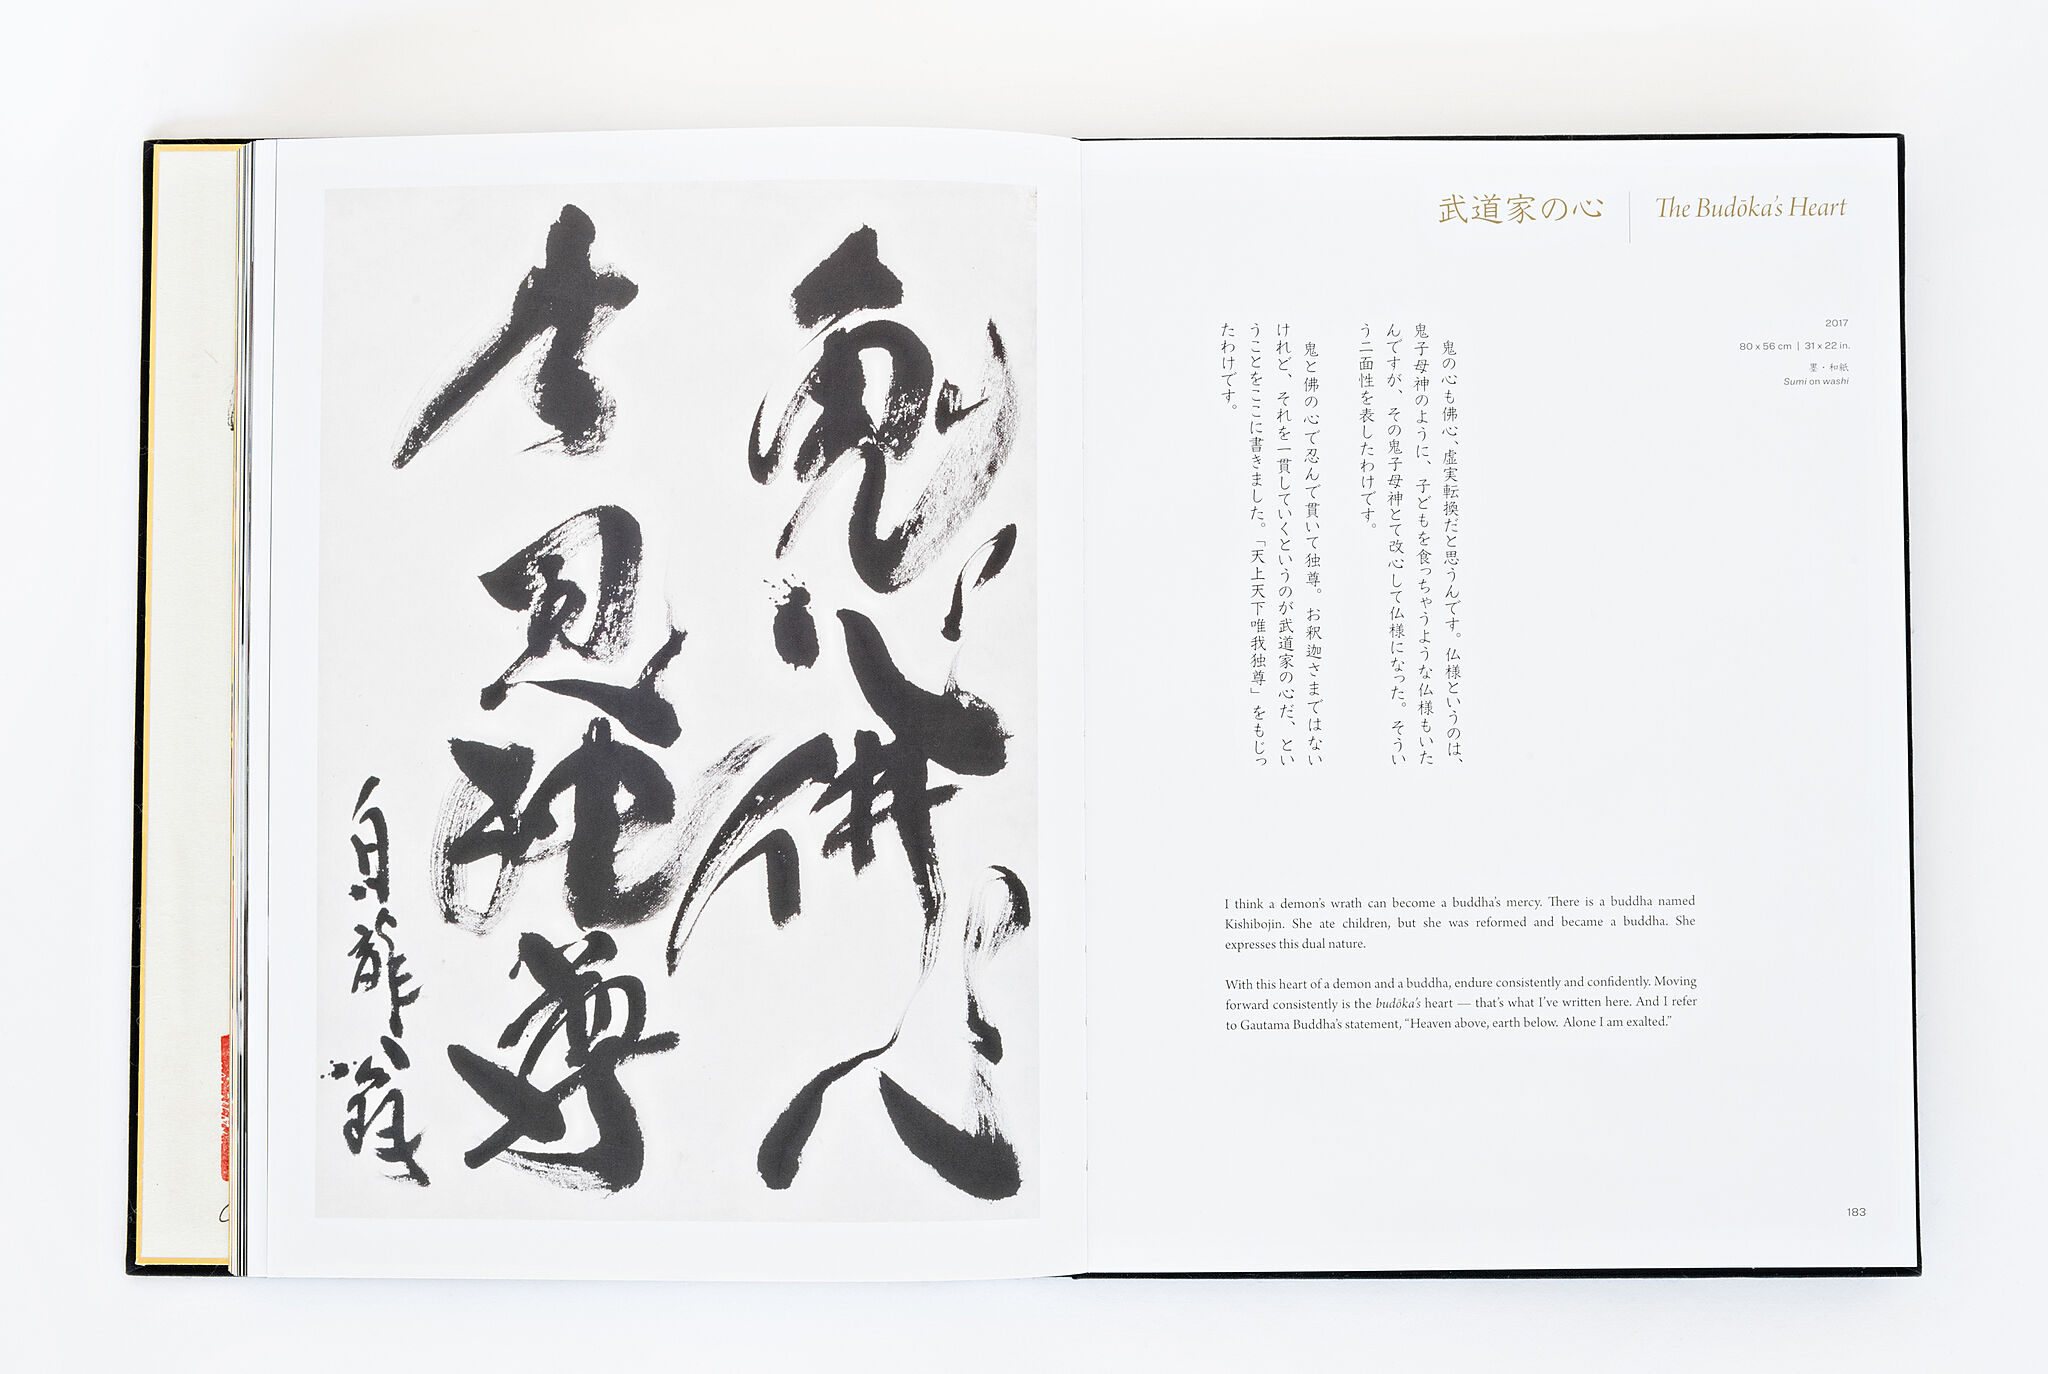 鬼心佛心
忍独尊
白龍翁
武道家の心
The Budōka's Heart
2017
80 x 56 cm | 31 x 22 in.
墨・和紙
Sumi on washi
鬼の心も佛心、虚実転換だと思うんです。仏様というのは、
鬼子母神のように、子どもを食っちゃうような仏様もいた
んですが、その鬼子母神とて改心して仏様になった。そうい
う二面性を表したわけです。
鬼と佛の心で忍んで貫いて独尊。お釈迦さまではない
けれど、それを一貫していくというのが武道家の心だ、とい
うことをここに書きました。「天上天下唯我独尊」をもじっ
たわけです。
I think a demon's wrath can become a buddha's mercy. There is a buddha named
Kishibojin. She ate children, but she was reformed and became a buddha. She
expresses this dual nature.
With this heart of a demon and a buddha, endure consistently and confidently. Moving
forward consistently is the budōka's heart — that's what I've written here. And I refer
to Gautama Buddha's statement, “Heaven above, earth below. Alone I am exalted.”
183